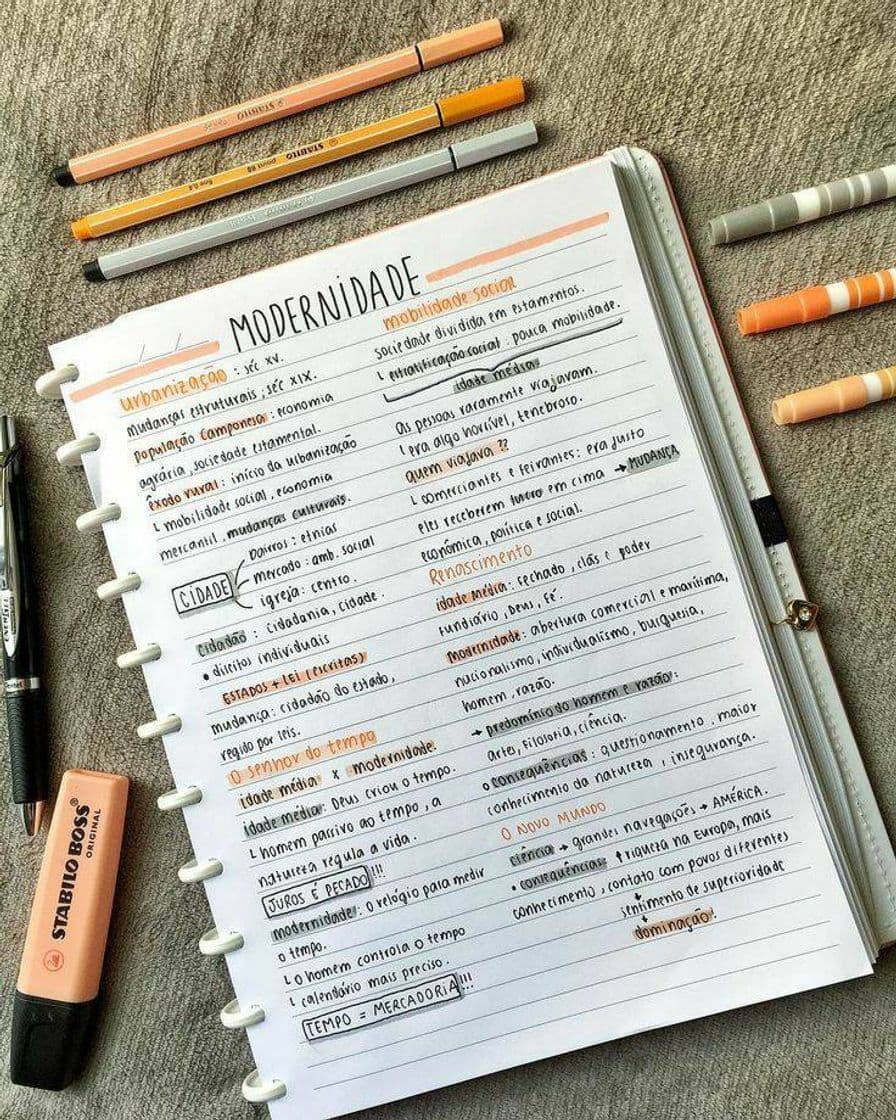 STABILO
STABILO point 88 fine 0,4
MODERNIDADE
urbanização : séc XV.
mudanças estruturais ; séc XIX.
População Camponesa : economia
agrária, sociedade estamental.
êxodo rural : início da urbanização
└ mobilidade social, economia
mercantil, mudanças culturais.
CIDADE
bairros : etnias
mercado : amb. social
igreja : centro.
cidadão : cidadania, cidade.
• direitos individuais
ESTADOS + LEI (escritas)
mudança : cidadão do estado,
regido por leis.
O senhor do tempo
idade média x modernidade.
idade média : Deus criou o tempo.
└ homem passivo ao tempo, a
natureza regula a vida.
JUROS É PECADO!!!
modernidade : o relógio para medir
o tempo.
└ o homem controla o tempo
└ calendário mais preciso.
TEMPO = MERCADORIA!!!
mobilidade social
sociedade dividida em estamentos.
└ estratificação social : pouca mobilidade.
idade média
As pessoas raramente viajavam.
└ era algo horrível, tenebroso.
quem viajava ??
└ comerciantes e feirantes : era justo
eles receberem lucro em cima → MUDANÇA
econômica, política e social.
Renascimento
idade média : fechado, clãs e poder
fundiário, Deus, fé.
Modernidade : abertura comercial e marítima,
nacionalismo, individualismo, burguesia,
homem, razão.
→ predomínio do homem e razão :
artes, filosofia, ciência.
o consequências : questionamento, maior
conhecimento da natureza, insegurança.
O NOVO MUNDO
ciência → grandes navegações → AMÉRICA.
• consequências : ↑ riqueza na Europa, mais
conhecimento, contato com povos diferentes
↓
sentimento de superioridade
↓
dominação!
ENERGEL
Pentel
STABILO BOSS®
ORIGINAL